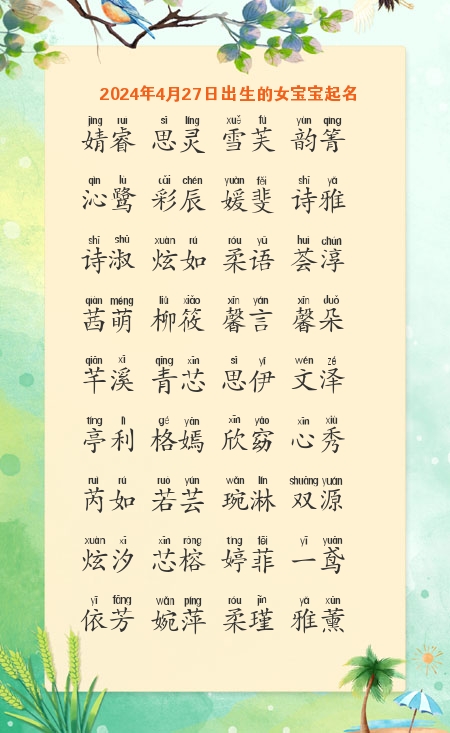 2024年4月27日出生的女宝宝起名
jìng ruì sī líng xuě fú yùn qìng
婧睿 思灵 雪芙 韵箐
qìn lù cǎi chén yuàn fěi shī yǎ
沁鹭 彩辰 媛斐 诗雅
shī shū xuàn rú róu yǔ huì chún
诗淑 炫如 柔语 荟淳
qiàn méng liǔ xiǎo xīn yán xīn duǒ
茜萌 柳筱 馨言 馨朵
qiān xī qīng xīn sī yī wén zé
芊溪 青芯 思伊 文泽
tíng lì gé yān xīn yǎo xīn xiù
亭利 格嫣 欣窈 心秀
ruì rú ruò yún wǎn lín shuāng yuán
芮如 若芸 琬淋 双源
xuàn xī xīn róng tíng fēi yī yuān
炫汐 芯榕 婷菲 一鸢
yī fāng wǎn píng róu jǐn yǎ xūn
依芳 婉萍 柔瑾 雅薰